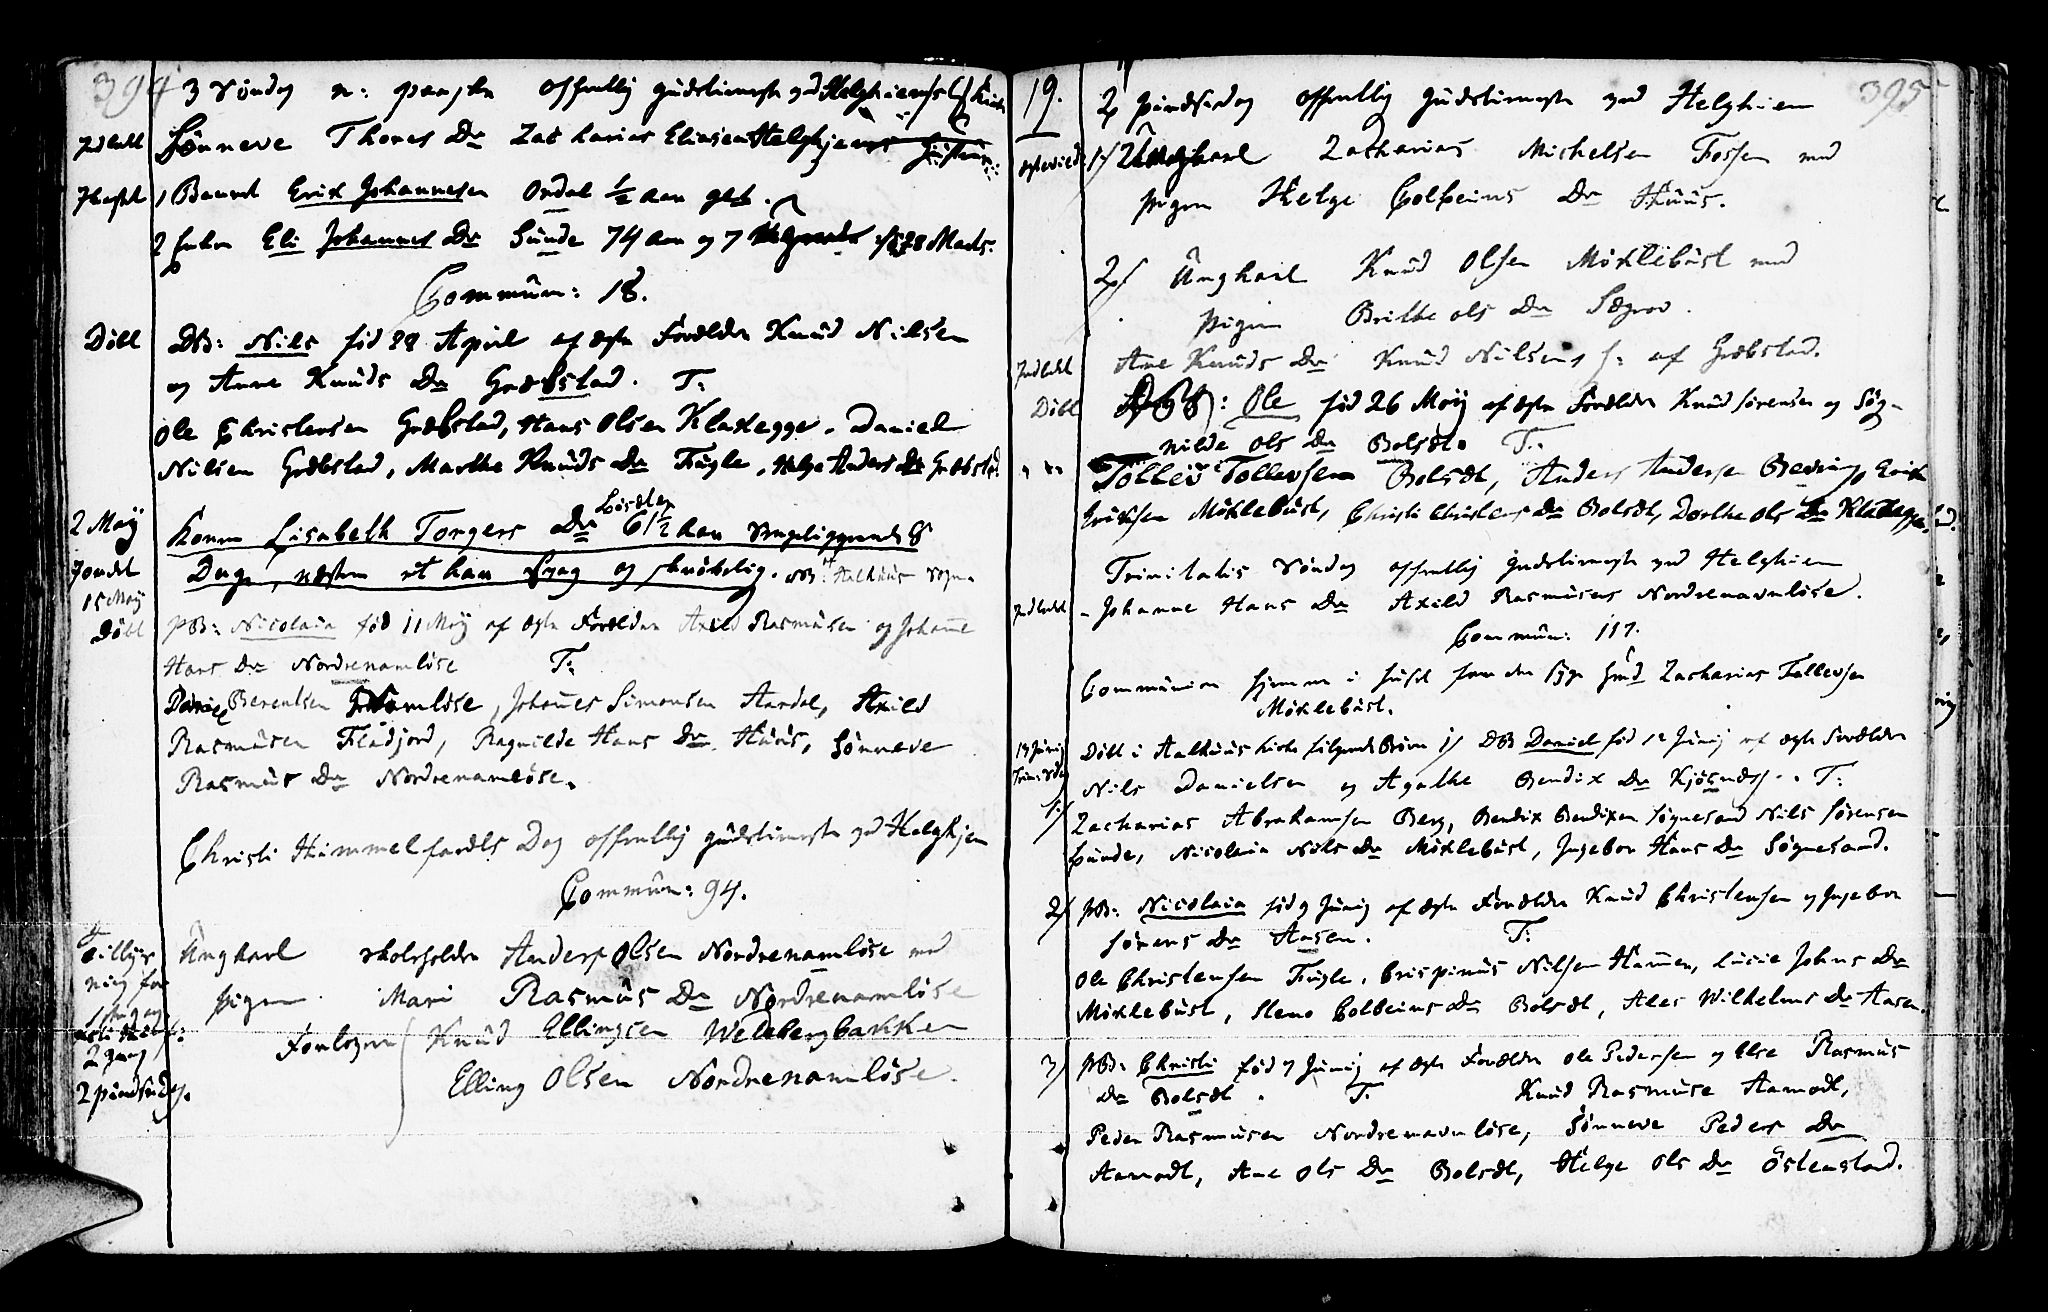 394
3 Søndag n: paaske offentlig gudstieneste ved Helghiems Kirke
Indledt Sønneve Thones Dr Zacharias Eliesen Helghjems
1 Barnet Erik Johannesen Ordal 1/2 aar glt.
2 Enken Eli Johannes Dr Sunde 74 aar og 7
Commun: 18.
Döbt DB: Nils föd 28 April af ægte Forældre Knud Nilsen
og Anne Knuds Dr Græbstad. T:
Ole Christensen Græbstad, Hans Olsen Klakegge, Daniel
Nilsen Græbstad, Marthe Knuds Dr Fugle, Helge Anders Dr Græbstad
2 Maij Konen Lisabeth Torgers Dr 61 1/2 aar sengeliggende 8
Dage, næsten et aar svag og skrøbelig.
15 Maij
Döbt PB: Nicolaia föd 11 Maij af ægte Forældre Axild Rasmusen og Johanne
Hans Dr Nordrenamløse T:
Daniel Berentsen Johannes Simonsen Aardal, Axild
Rasmusen Fladjord, Ragnilde Hans Dr Huus, Sønneve
Rasmus Dr Nordrenamløse.
Christi Himmelfardts Dag offentlig gudstieneste ved Helghjem
Commun: 94.
Ungkarl skoleholder Anders Olsen Nordrenamløse med
pigen Mari Rasmus Dr Nordrenamløse
Forlovere Knud Ellingsen
Elling Olsen Nordrenamløse.
2 pindsedag.
395
19. 2 pindsedag offentlig gudstieneste ved Helghiem
1/ Ungkarl Zacharias Michelsen Fossen med
pigen Helge Colbeins Dr Huus.
2/ Ungkarl Knud Olsen Myklebust med
pigen Brithe Ols Dr Sægrov.
Indledt Ane Knuds Dr Knud Nilsens h: af Græbstad.
Döbt Ole föd 26 Maij af ægte Forældre Knud Sørensen og Søg-
nilde Ols Dr Bolsæt. T:
Tollev Tollevsen Bolsæt, Anders Andersen Erik
Eriksen Myklebust, Christi Dr Bolsæt, Dorthe Ols Dr Klakegge.
Trinitatis Søndag offentlig gudstieneste ved Helghiem
Indledt - Johanne Hans Dr Axild Rasmusens Nordrenavnløse.
Commun: 117.
Communion hjemme i huset for den syge Zacharias Tollevsen
Myklebust.
Döbt i Aalhuus kirke følgende Børn 1/ DB Daniel föd 12 Junij af ægte Forældre
Nils Danielsen og Agathe Bendix Dr Kjøsnæs. T:
Zacharias Abrahamsen Berg, Bendix Bendixen Søgnesand Nils Sørensen
Sunde, Nicolaia Nils Dr Myklebust, Ingebor Hans Dr Søgnesand.
2/ PB: Nicolaia föd 9 Junij af ægte Forældre Knud Christensen og Ingebor
Sørens Dr Aasen. T:
Ole Christensen Fugle, Crispinus Nilsen Lucie Johns Dr
Myklebust, Colbeins Dr Bolsæt, Ales Wilhelms Dr Aasen.
3/ PB: Christi föd 7 Junij af ægte Forældre Ole Pedersen og Else Rasmus
Dr Bolsæt. T: Knud Rasmuse Aamodt,
Peder Rasmusen Nordrenavnløse, Sønneve Peders Dr
Aamodt, Ane Ols Dr Bolsæt, Helge Ols Dr Østenstad.